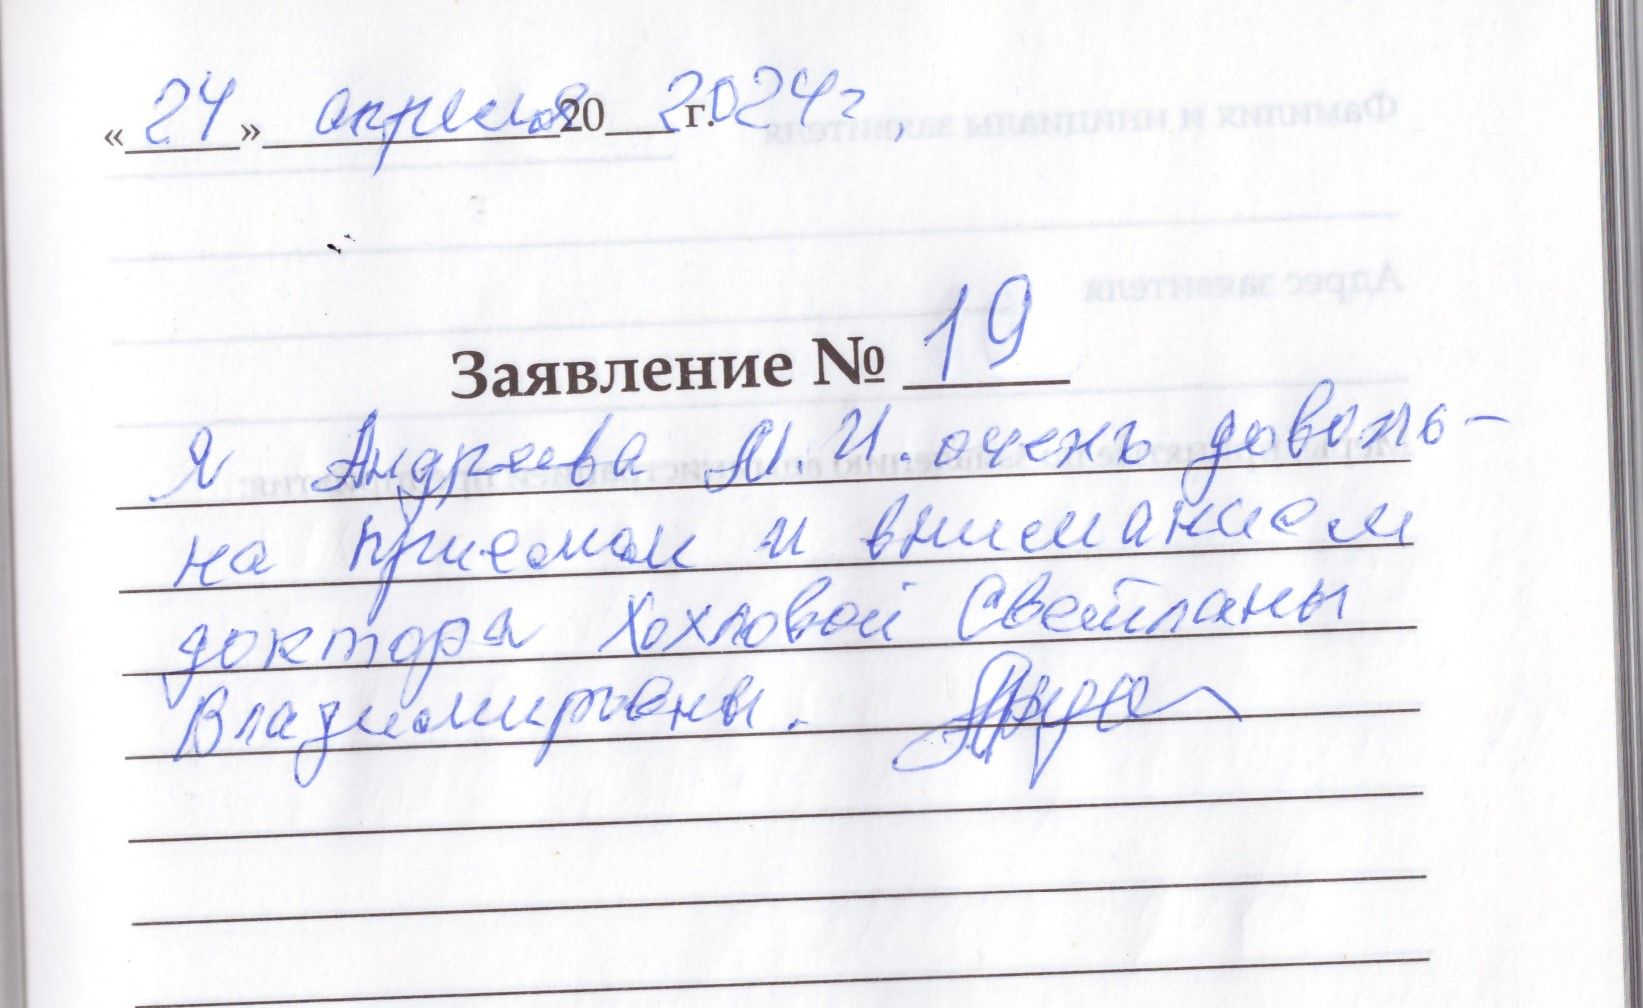 « 24 » апреля 20___ г. 2024 г.
Заявление № 19
Я Андреева М.И. очень доволь-
на приемом и вниманием
доктора Хохловой Светланы
Владимировны.